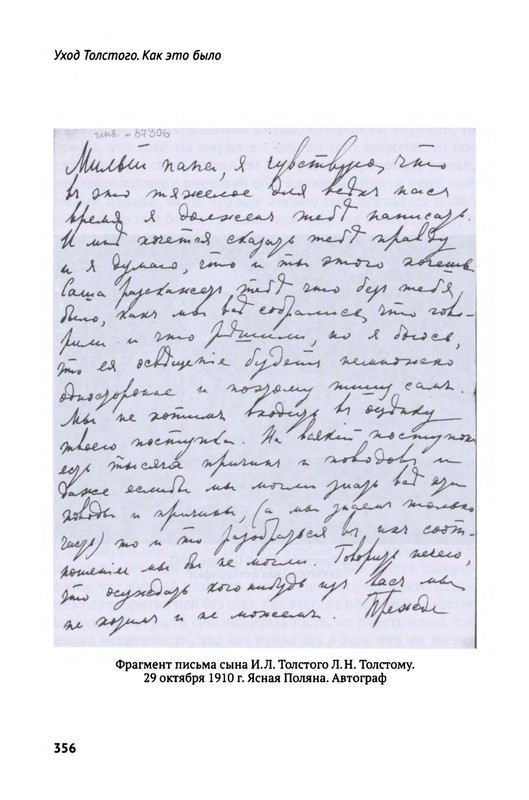 Уход Толстого. Как это было
инв. № 67306
Милый папа, я чувствую, что
въ это тяжелое для всѣхъ насъ
время я долженъ тебѣ написать.
И мнѣ хочется сказать тебѣ правду
и я думаю, что и ты этого хочешь.
Саша разскажетъ тебѣ что безъ тебя
было, какъ мы всѣ собрались, что гово-
рили и что рѣшили, но я боюсь,
что ея освѣщеніе будетъ немножко
одностороннее и поэтому пишу самъ.
Мы не хотимъ входить въ оцѣнку
твоего поступка. На всякій поступокъ
есть тысяча причинъ и поводовъ и
даже еслибы мы могли знать всѣ эти
поводы и причины, (а мы знаемъ только
часть) то и то разобраться въ ихъ соот-
ношеніи мы бы не могли. Говорить нечего,
что осуждать кого нибудь изъ васъ мы
не хотимъ и не можемъ. Прежде
Фрагмент письма сына И.Л. Толстого Л.Н. Толстому.
29 октября 1910 г. Ясная Поляна. Автограф
356